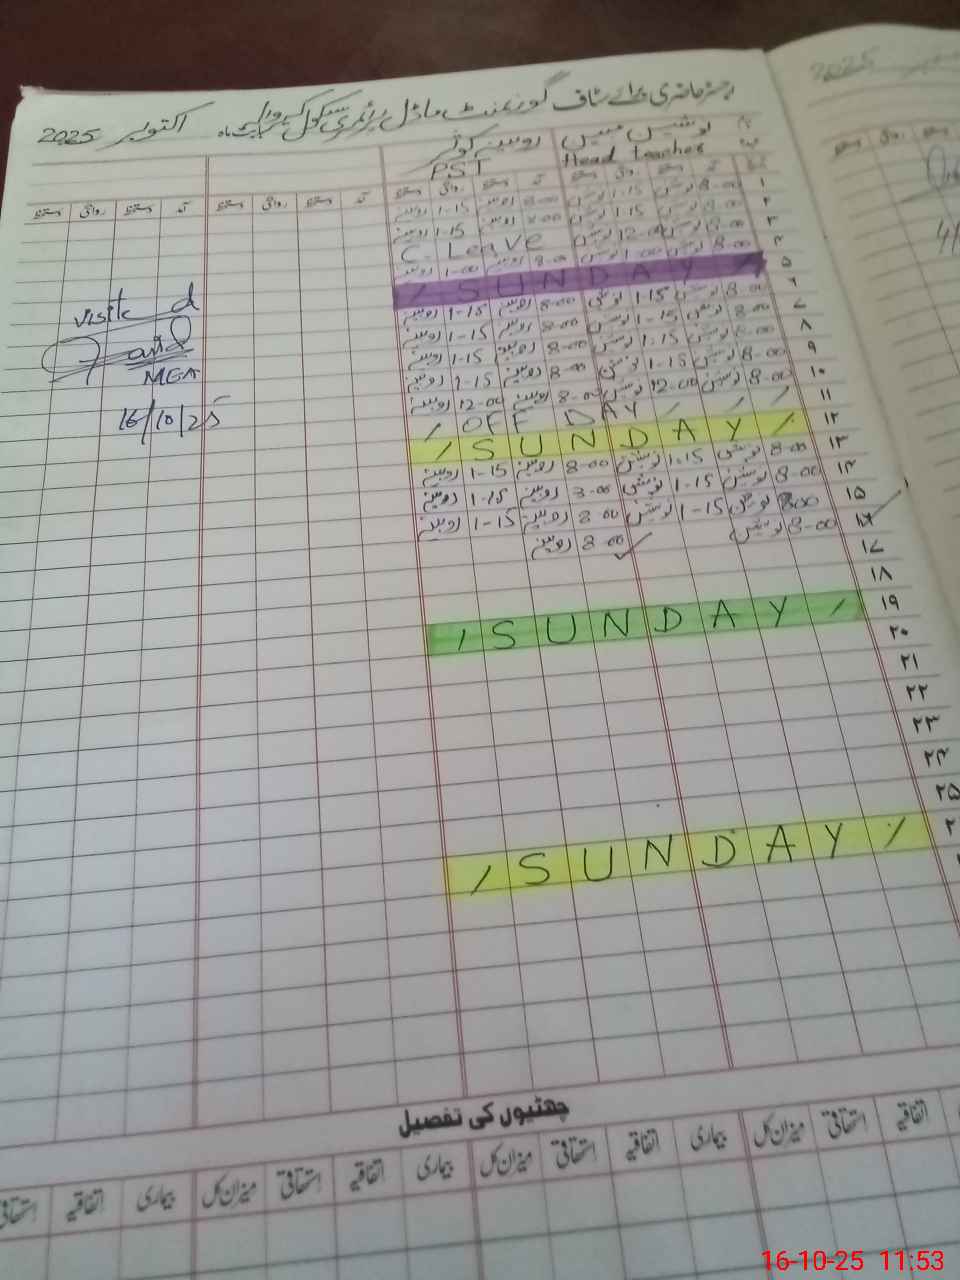 رجسٹر حاضری برائے سٹاف گورنمنٹ ماڈل پرائمری سکول بابت ماہ اکتوبر 2025
نوشین مبین روبینہ کوثر
Head teacher PST
آمد دستخط روانگی دستخط آمد دستخط روانگی دستخط آمد دستخط روانگی دستخط آمد دستخط روانگی دستخط
۱ 8-00 نوشین 1-15 نوشین 8-00 روبینہ 1-15 روبینہ
۲ 8-00 نوشین 1-15 نوشین 8-00 روبینہ 1-15 روبینہ
۳ 8-00 نوشین 12-00 نوشین C. Leave
۴ 8-00 نوشین 1-00 نوشین 8-00 روبینہ 1-00 روبینہ
۵ / SUNDAY /
۶ 8-00 نوشین 1-15 نوشین 8-00 روبینہ 1-15 روبینہ
۷ 8-00 نوشین 1-15 نوشین 8-00 روبینہ 1-15 روبینہ
۸ 8-00 نوشین 1-15 نوشین 8-00 روبینہ 1-15 روبینہ
۹ 8-00 نوشین 1-15 نوشین 8-00 روبینہ 1-15 روبینہ
۱۰ 8-00 نوشین 12-00 نوشین 8-00 روبینہ 12-00 روبینہ
۱۱ / OFF DAY / / /
۱۲ / SUNDAY /
۱۳ 8-00 نوشین 1-15 نوشین 8-00 روبینہ 1-15 روبینہ
۱۴ 8-00 نوشین 1-15 نوشین 8-00 روبینہ 1-15 روبینہ
۱۵ 8-00 نوشین 1-15 نوشین 8-00 روبینہ 1-15 روبینہ
۱۶ 8-00 نوشین 8-00 روبینہ
۱۷
۱۸
۱۹ / SUNDAY /
۲۰
۲۱
۲۲
۲۳
۲۴
۲۵
/ SUNDAY /
visited
MEA
16/10/25
چھٹیوں کی تفصیل
اتفاقیہ استحقاقی میزان کل بیماری اتفاقیہ استحقاقی میزان کل بیماری اتفاقیہ استحقاقی میزان کل بیماری اتفاقیہ استحقاقی
2025
16-10-25 11:53